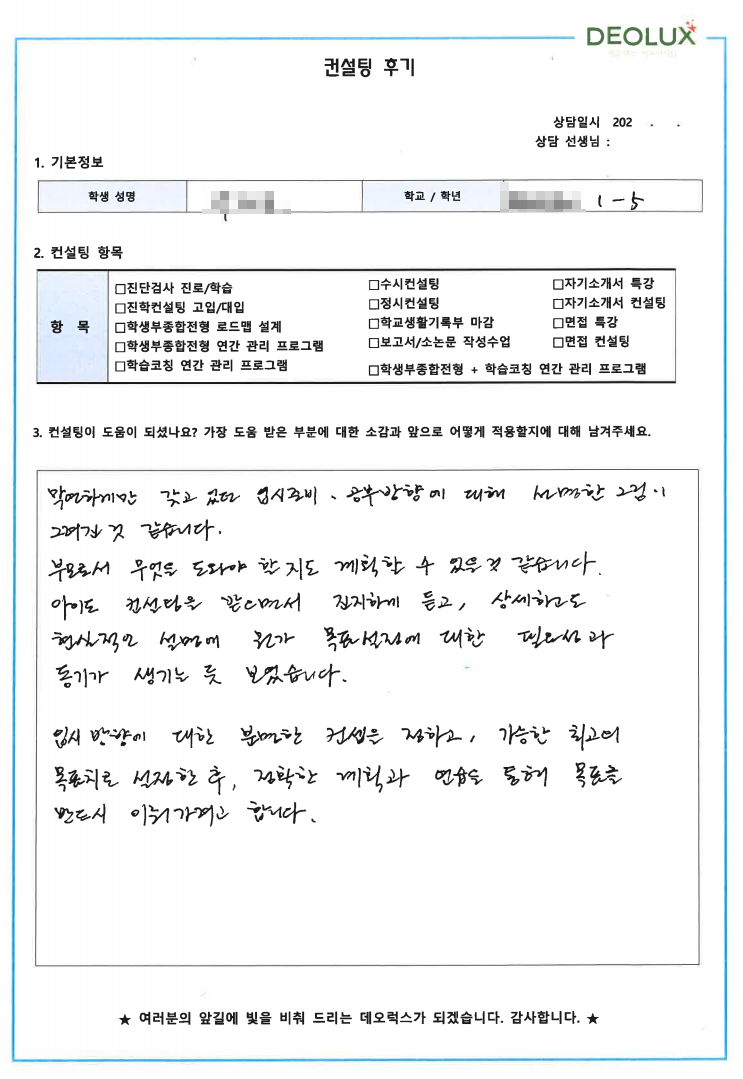 DEOLUX
컨설팅 후기
상담일시 202 . .
상담 선생님 :
1. 기본정보
학생 성명
학교 / 학년 1-5
2. 컨설팅 항목
항 목
□진단검사 진로/학습 □수시컨설팅 □자기소개서 특강
□진학컨설팅 고입/대입 □정시컨설팅 □자기소개서 컨설팅
□학생부종합전형 로드맵 설계 □학교생활기록부 마감 □면접 특강
□학생부종합전형 연간 관리 프로그램 □보고서/소논문 작성수업 □면접 컨설팅
□학습코칭 연간 관리 프로그램 □학생부종합전형 + 학습코칭 연간 관리 프로그램
3. 컨설팅이 도움이 되셨나요? 가장 도움 받은 부분에 대한 소감과 앞으로 어떻게 적용할지에 대해 남겨주세요.
막연하게만 갖고 있던 입시준비, 공부방향에 대해 선명한 그림이
그려진 것 같습니다.
부모로서 무엇을 도와야 할 지도 계획할 수 있을 것 같습니다.
아이도 컨설팅을 받으면서 진지하게 듣고, 상세하고도
현실적인 설명에 뭔가 목표설정에 대한 필요성과
동기가 생기는 듯 보였습니다.
입시 방향에 대한 분명한 컨셉을 정하고, 가능한 최고의
목표치를 설정한 후, 정확한 계획과 연습을 통해 목표를
반드시 이뤄가려고 합니다.
★ 여러분의 앞길에 빛을 비춰 드리는 데오럭스가 되겠습니다. 감사합니다. ★